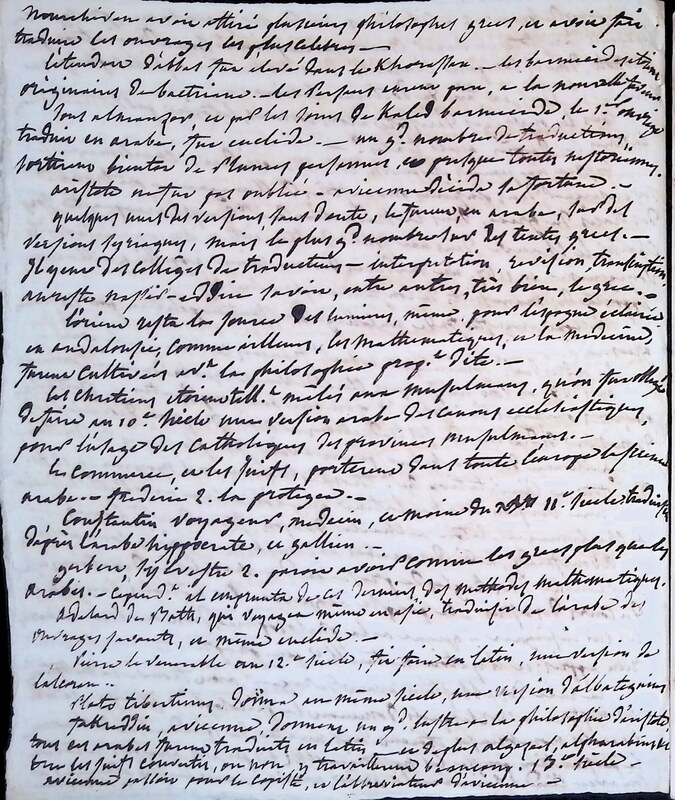 Nourchivan avoir attiré plusieurs philosophes grecs, et avoir fait
traduire les ouvrages les plus célèbres —
l'étendard d'abbas fut élevé dans le Khorassan. — les barmécides étaient
originaires de bactriane. — les Perses eurent part, a la nouvelle
sous almanzor, et par les soins de Kaled barmécide, le 1er ouvrage
traduit en arabe, fut euclide. — un gd. nombre de traductions,
sortirent bientôt de plumes persannes, et presque toutes nestoriennes.
aristote ne fut pas oublié — avicenne décida sa fortune. —
quelques unes des versions, sans doute, le furent, en arabe, sur des
versions syriaques, mais le plus gd. nombre sur des textes grecs. —
Il y eut des collèges de traducteurs — interprétation, révision, transcription
au reste nassir-eddin savoit, entre autres, très bien, le grec. —
l'orient resta la source des lumières, même, pour l'espagne éclairée
en andalousie, comme ailleurs, les mathématiques, et la médecine,
furent cultivées avt. la philosophie propt. dite. —
les chrétiens étoient tellt. mêlés aux musulmans, qu'on fut obligé
de faire au 10e. siècle une version arabe des canons ecclésiastiques,
pour l'usage des catholiques des provinces musulmanes. —
le commerce, et les juifs, portèrent dans toute l'europe la science
arabe. — frédéric 2. la protégea. —
Constantin voyageur, médecin, et moine du 11e. siècle traduisit
d'après l'arabe hyppocrate, et gallien. —
gerbert, Sylvestre 2. paroit avoir connu les grecs plus que les
arabes. — cependt. il emprunta de ces derniers des méthodes mathématiques.
adelard de Bath, qui voyagea même en asie, traduisit de l'arabe des
ouvrages savants, et même euclide. —
Pierre le vénérable au 12e. siècle, fit faire en latin, une version de
l'alcoran. —
Plato tiburtinus donna au même siècle, une version d'albategnius
fakreddin, avicenne donnèrent un gd. lustre a la philosophie d'aristote
tous ces arabes furent traduits en latin — et de plus algazel, alpharabius
les juifs convertis, ou non, y travaillèrent beaucoup. 13e. siècle —
avicenne passoit pour le copiste, et l'abbréviateur d'avicenne. —